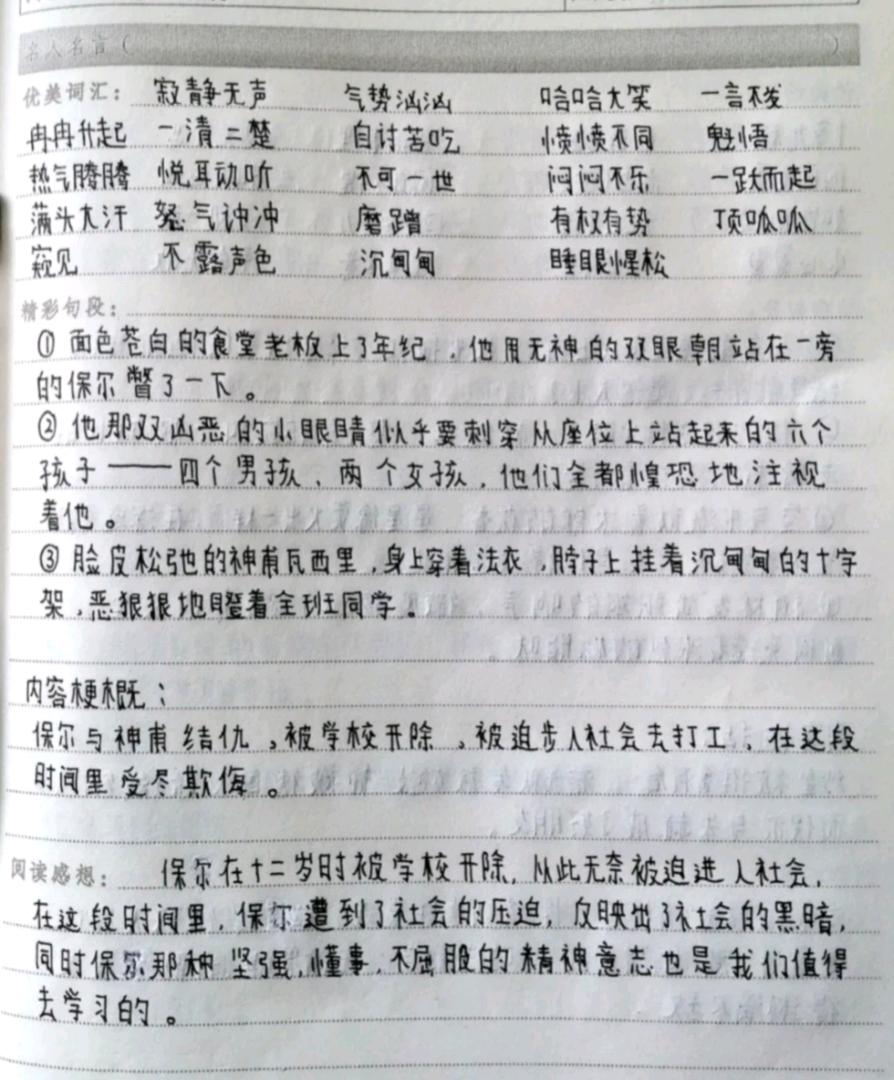 名人名言（ ）
优美词汇： 寂静无声 气势汹汹 哈哈大笑 一言不发
冉冉升起 一清二楚 自讨苦吃 愤愤不同 魁悟
热气腾腾 悦耳动听 不可一世 闷闷不乐 一跃而起
满头大汗 怒气冲冲 磨蹭 有权有势 顶呱呱
窥见 不露声色 沉甸甸 睡眼惺松
精彩句段：
① 面色苍白的食堂老板上了年纪，他用无神的双眼朝站在一旁
的保尔瞥了一下。
② 他那双凶恶的小眼睛似乎要刺穿从座位上站起来的六个
孩子——四个男孩、两个女孩，他们全都惶恐地注视
着他。
③ 脸皮松弛的神甫瓦西里，身上穿着法衣，脖子上挂着沉甸甸的十字
架，恶狠狠地瞪着全班同学。
内容梗概：
保尔与神甫结仇，被学校开除，被迫步入社会去打工、在这段
时间里受尽欺侮。
阅读感想： 保尔在十二岁时被学校开除，从此无奈被迫进入社会，
在这段时间里，保尔遭到了社会的压迫，反映出了社会的黑暗，
同时保尔那种坚强，懂事，不屈服的精神意志也是我们值得
去学习的。